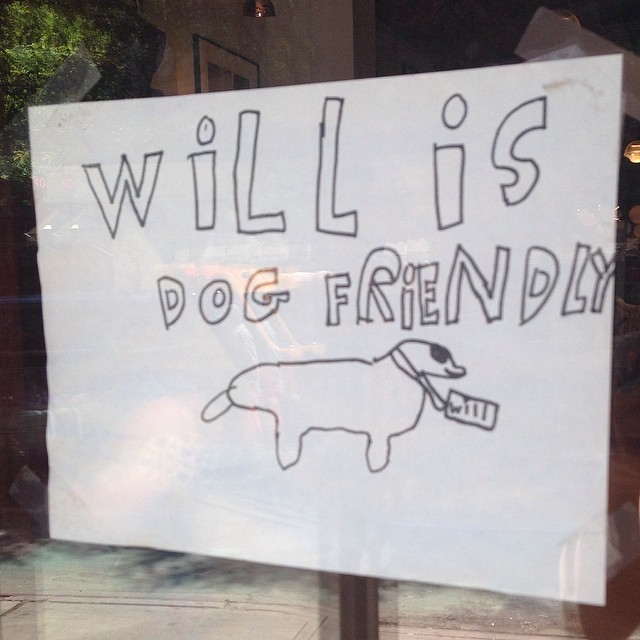 WiLL iS
DOG FRiENDLY
Will